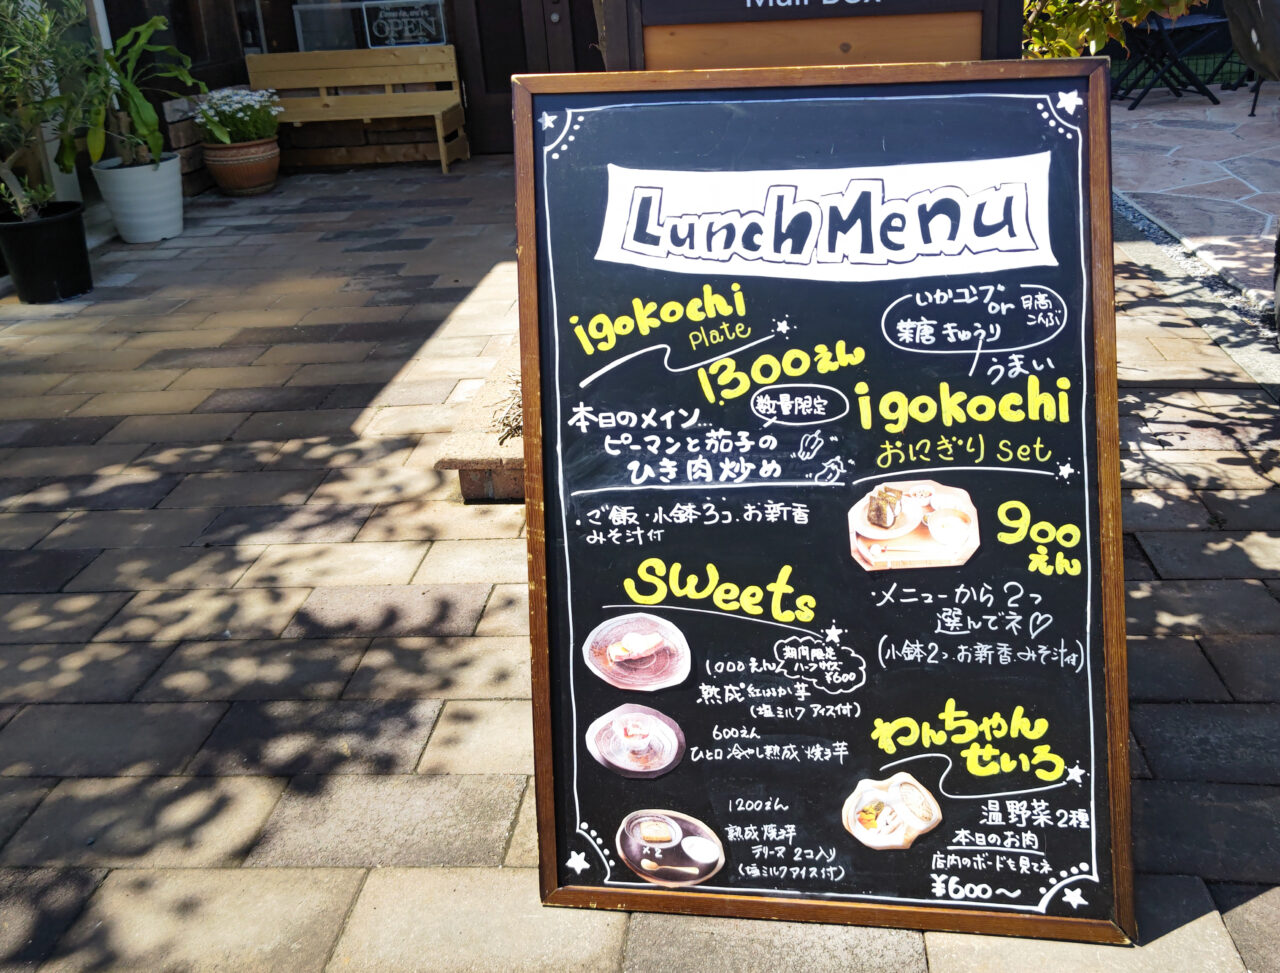 Mail Box
OPEN
Lunch Menu
igokochi
Plate
1300えん
数量限定
本日のメイン...
ピーマンと茄子の
ひき肉炒め
・ご飯・小鉢3コ・お新香
みそ汁付
いかコンブ
or
日高
こんぶ
葉唐きゅうり
うまい
igokochi
おにぎり set
900
えん
・メニューから2つ
選んでネ♡
(小鉢2コ・お新香・みそ汁付)
Sweets
1000えん
期間限定
ハーフサイズ
¥600
熟成紅はるか芋
(塩ミルクアイス付)
600えん
ひと口冷やし熟成焼き芋
×2
1200えん
熟成焼き芋
テリーヌ 2コ入り
(塩ミルクアイス付)
わんちゃん
せいろ
温野菜2種
本日のお肉
店内のボードを見てネ
¥600〜